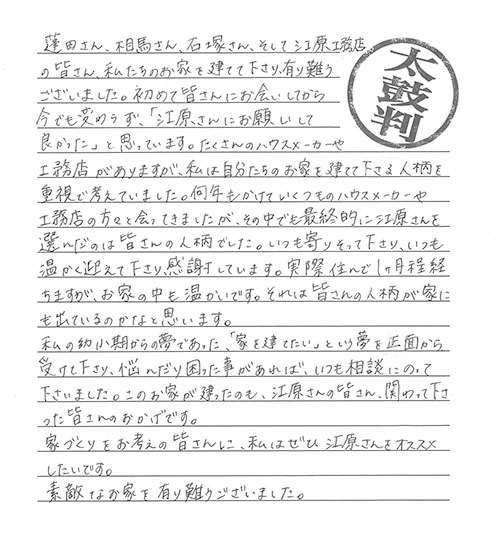 蓮田さん、相馬さん、石塚さん、そして江原工務店
の皆さん、私たちのお家を建てて下さり、有り難う
ございました。初めて皆さんにお会いしてから
今でも変わらず、「江原さんにお願いして
良かった」と思っています。たくさんのハウスメーカーや
工務店がありますが、私は自分たちのお家を建てて下さる人柄を
重視で考えていました。何年もかけていくつものハウスメーカーや
工務店の方々と会ってきましたが、その中でも最終的に江原さんを
選んだのは皆さんの人柄でした。いつも寄りそって下さり、いつも
温かく迎えて下さり、感謝しています。実際住んで1ヶ月程経
ちますが、お家の中も温かいです。それは皆さんの人柄が家に
も出ているのかなと思います。
私の幼少期からの夢であった、「家を建てたい」という夢を正面から
受けて下さり、悩んだり困った事があれば、いつも相談にのって
下さいました。このお家が建ったのも、江原さんの皆さん、関わって下さ
った皆さんのおかげです。
家づくりをお考えの皆さんに、私はぜひ江原さんをオススメ
したいです。
素敵なお家を有り難うございました。
太鼓判